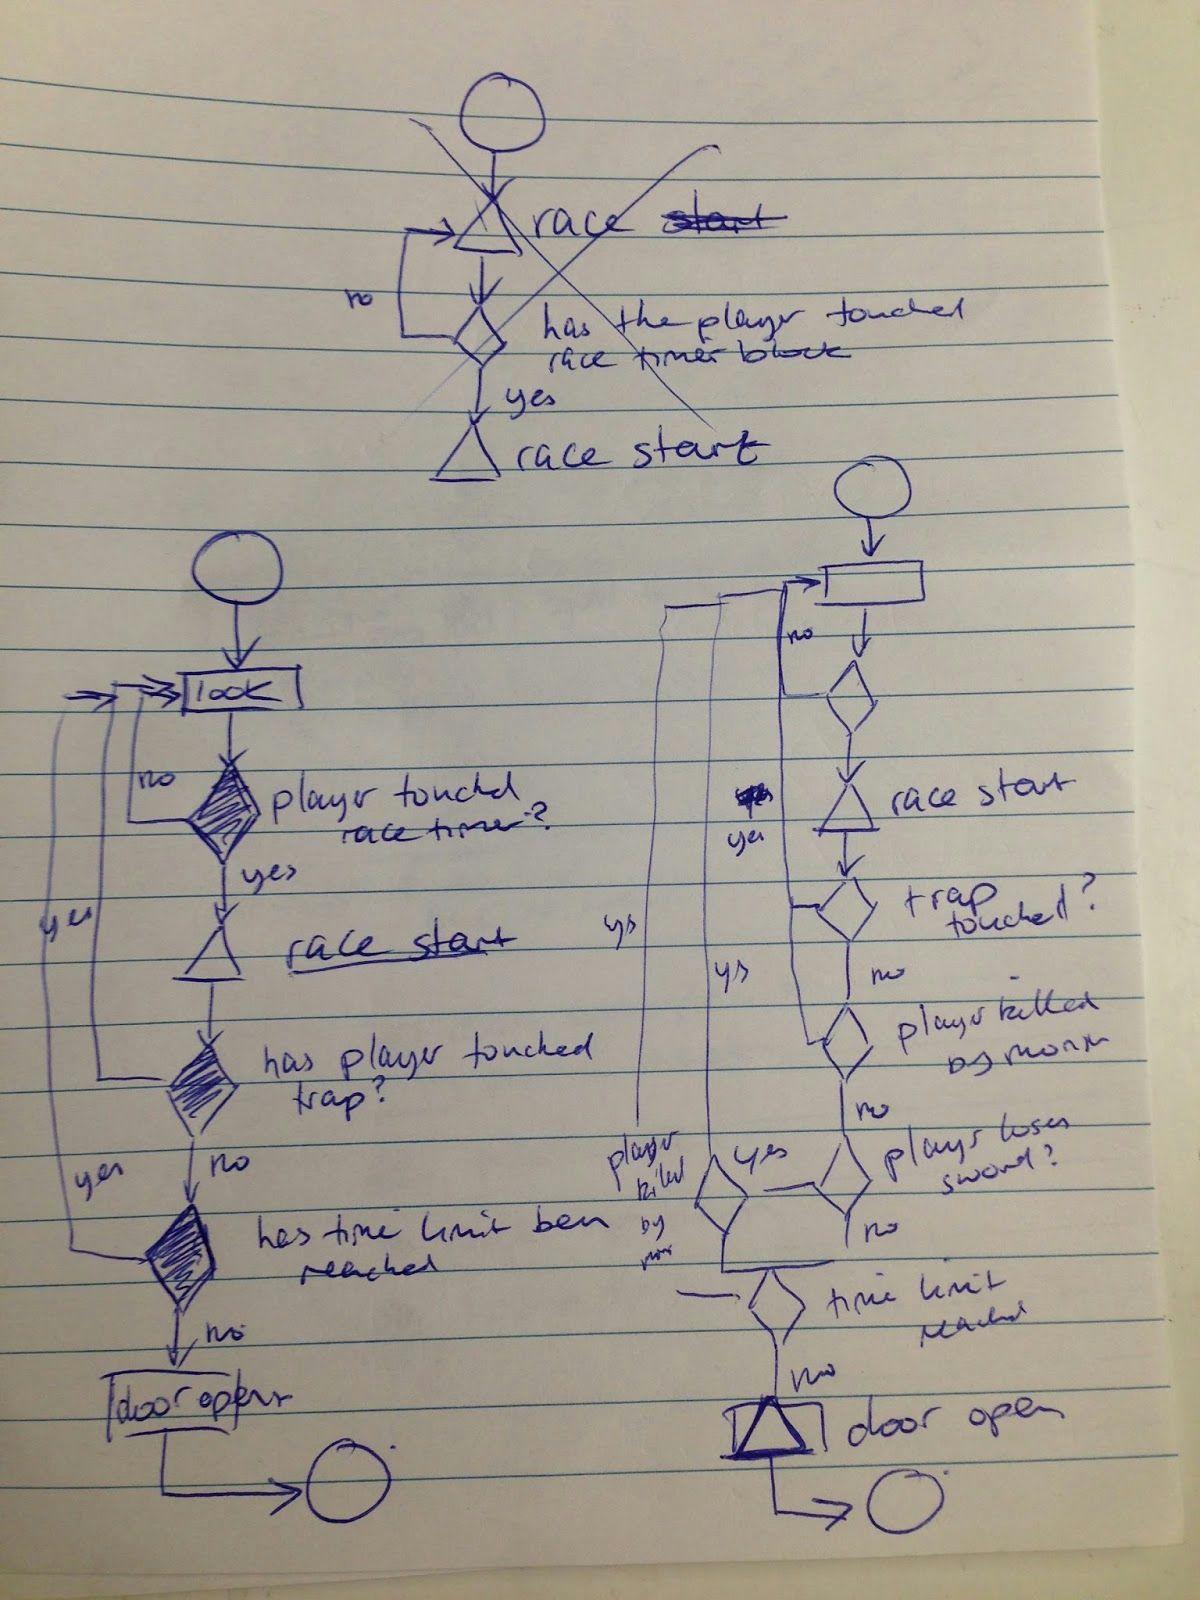 race start
no
has the player touched
race timer block
yes
race start
look
no
player touched
race timer?
yes
yes
race start
has player touched
trap?
no
yes
has time limit been
reached
no
door opens
no
race start
yes
trap
touched?
yes
no
yes
player killed
by
no
player loses
sword?
yes
no
player
killed
by
time limit
reached
no
door open